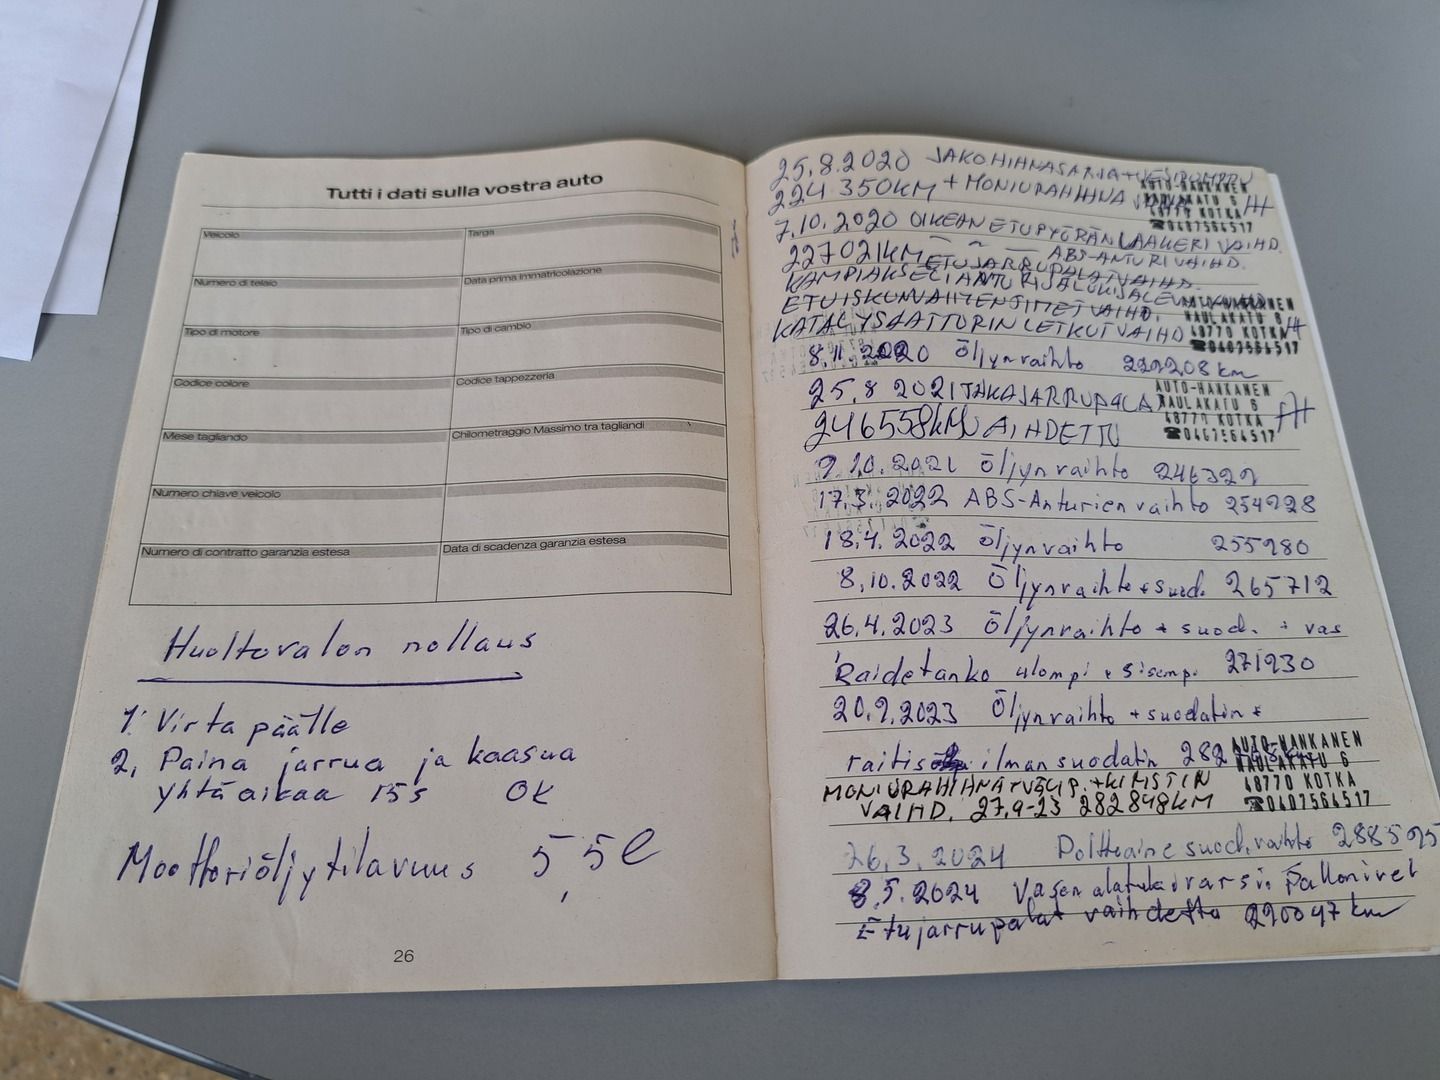 Tutti i dati sulla vostra auto
Veicolo
Targa
Numero di telaio
Data prima immatricolazione
Tipo di motore
Tipo di cambio
Codice colore
Codice tappezzeria
Mese tagliando
Chilometraggio Massimo tra tagliandi
Numero chiave veicolo
Numero di contratto garanzia estesa
Data di scadenza garanzia estesa
Huoltovalon nollaus
1. Virta päälle
2, Paina jarrua ja kaasua
yhtä aikaa 15s OK
Moottoriöljytilavuus 5,5l
26
25.8.2020 JAKOHIHNASARJA+VESIPUMPPU
224 350KM + MONIURAHIHNA
AUTO-HANKANEN
NAULAKATU 6
48770 KOTKA
☎0407564517
7.10.2020 OIKEAN ETUPYÖRÄN LAAKERI VAIHD.
227021KM ETUJARRUPALAT VAIHD.
ABS-ANTURI VAIHD.
KAMPIAKSELIANTURI JA
ETUISKUNVAIMENTIMET VAIHD.
KATALYSAATTORIN LETKUT VAIHD
AUTO-HANKANEN
NAULAKATU 6
48770 KOTKA
☎0407564517
8.11.2020 Öljynvaihto 229208km
25.8 2021 TAKAJARRUPALA
246558KM VAIHDETTU
AUTO-HANKANEN
NAULAKATU 6
48770 KOTKA
☎0407564517
9.10.2021 Öljynvaihto 246322
17.3.2022 ABS-Anturien vaihto 254228
18.4.2022 Öljynvaihto 255280
8.10.2022 Öljynvaihto + suod. 265712
26.4.2023 Öljynvaihto + suod. + vas
Raidetanko ulompi + sisemp. 271930
20.9.2023 Öljynvaihto + suodatin +
raitis ilmansuodatin 282
AUTO-HANKANEN
NAULAKATU 6
48770 KOTKA
☎0407564517
MONIURAHIHNA + KIRISTIN
VAIHD. 27.9-23 282848KM
26.3.2024 Polttoaine suod.vaihto 288525
8.5.2024 Vasen alatukivarsi. Pallonivel
Etujarrupalat vaihdettu 290047 km